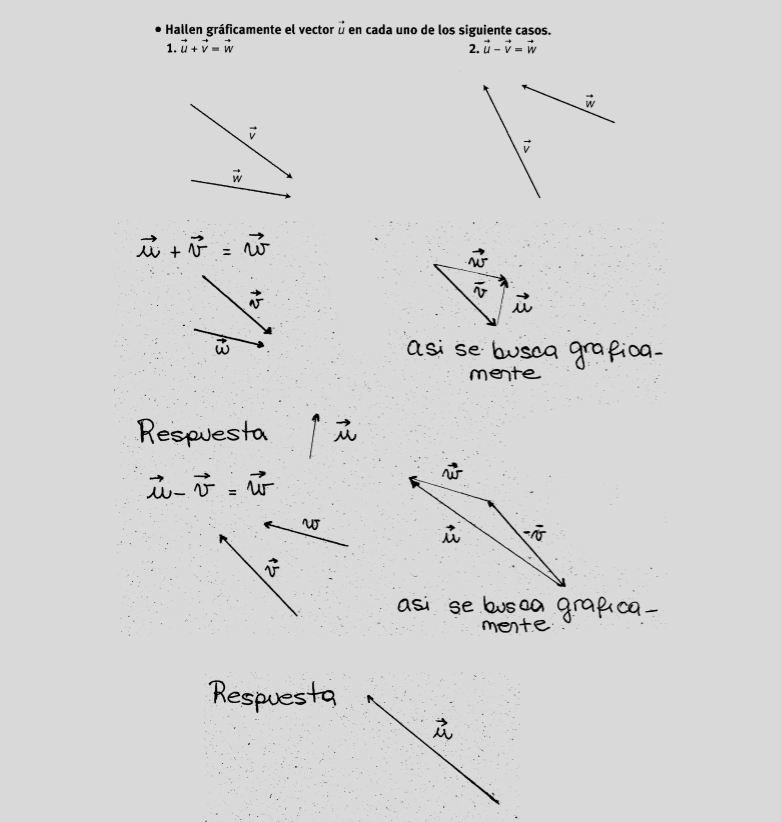 • Hallen gráficamente el vector u⃗ en cada uno de los siguiente casos.
1. u⃗ + v⃗ = w⃗
2. u⃗ − v⃗ = w⃗
v⃗
w⃗
w⃗
v⃗
u⃗ + v⃗ = w⃗
v⃗
w⃗
w⃗
v̄
u⃗
asi se busca grafica-
mente
Respuesta
u⃗
u⃗ − v⃗ = w⃗
w
v⃗
w⃗
u⃗
-v̄
asi se busca grafica-
mente
Respuesta
u⃗